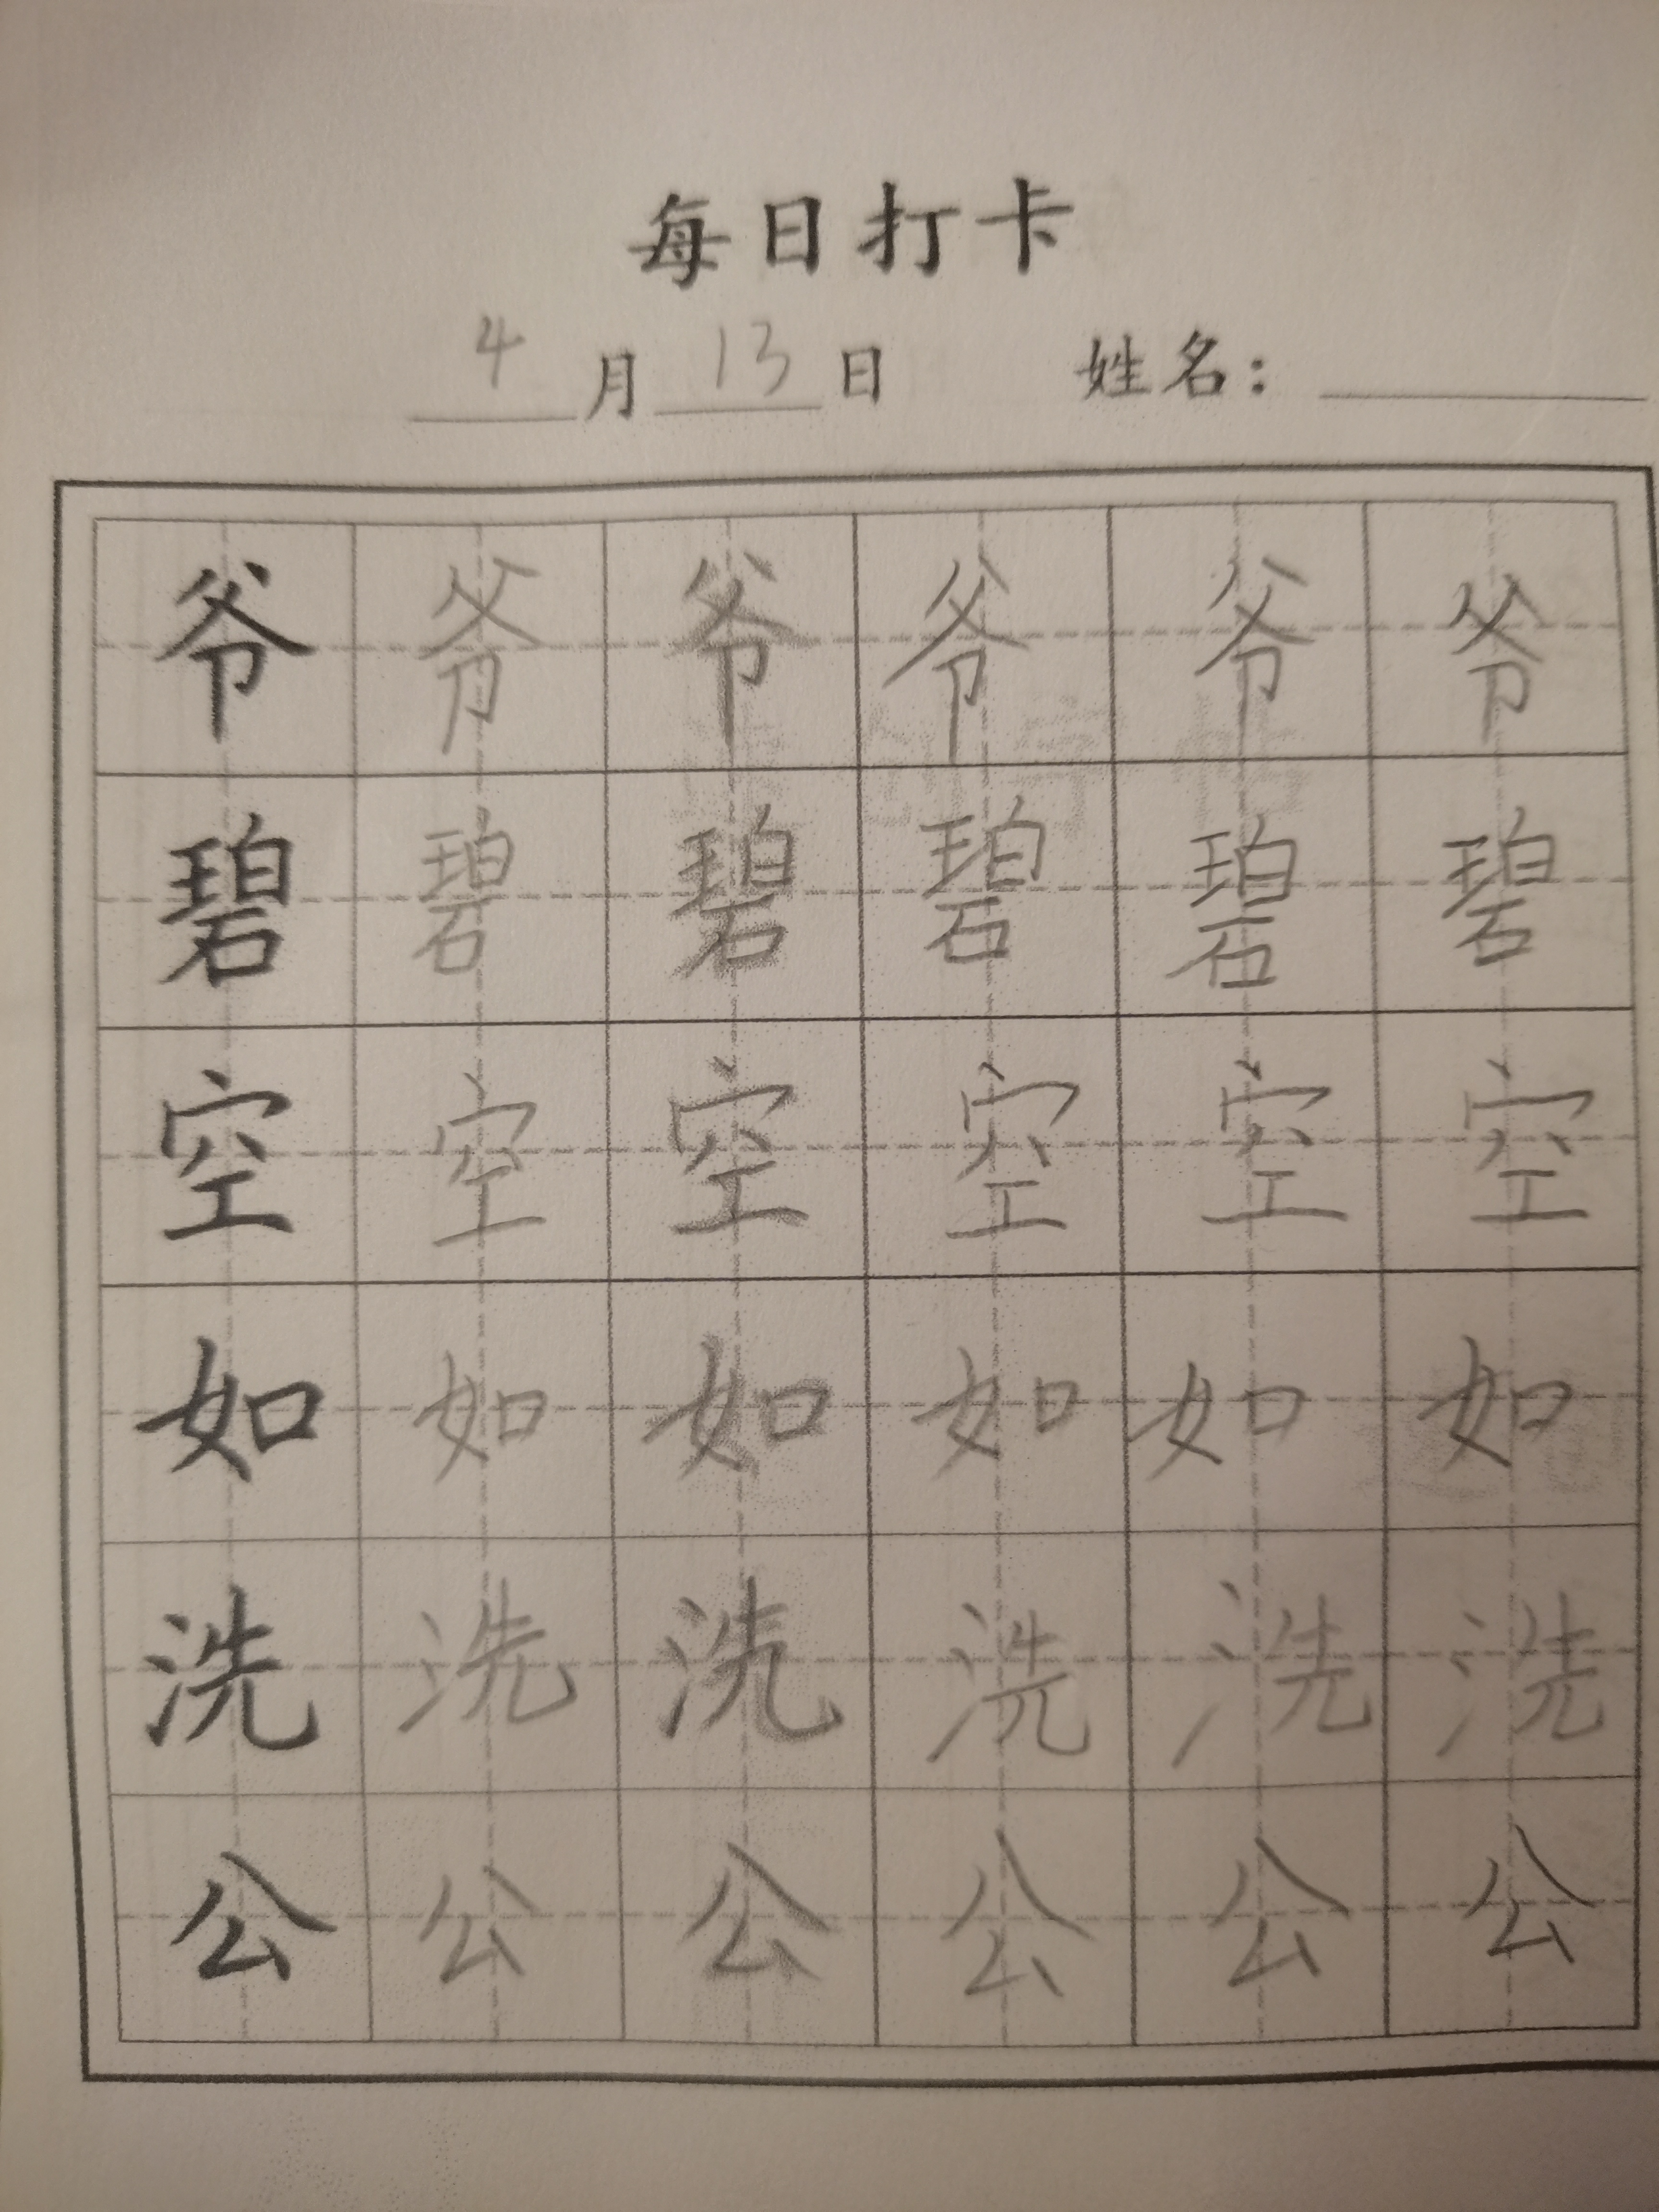 每日打卡
4月13日 姓名：
爷爷爷爷爷爷
碧碧碧碧碧碧
空空空空空空
如如如如如如
洗洗洗洗洗洗
公公公公公公